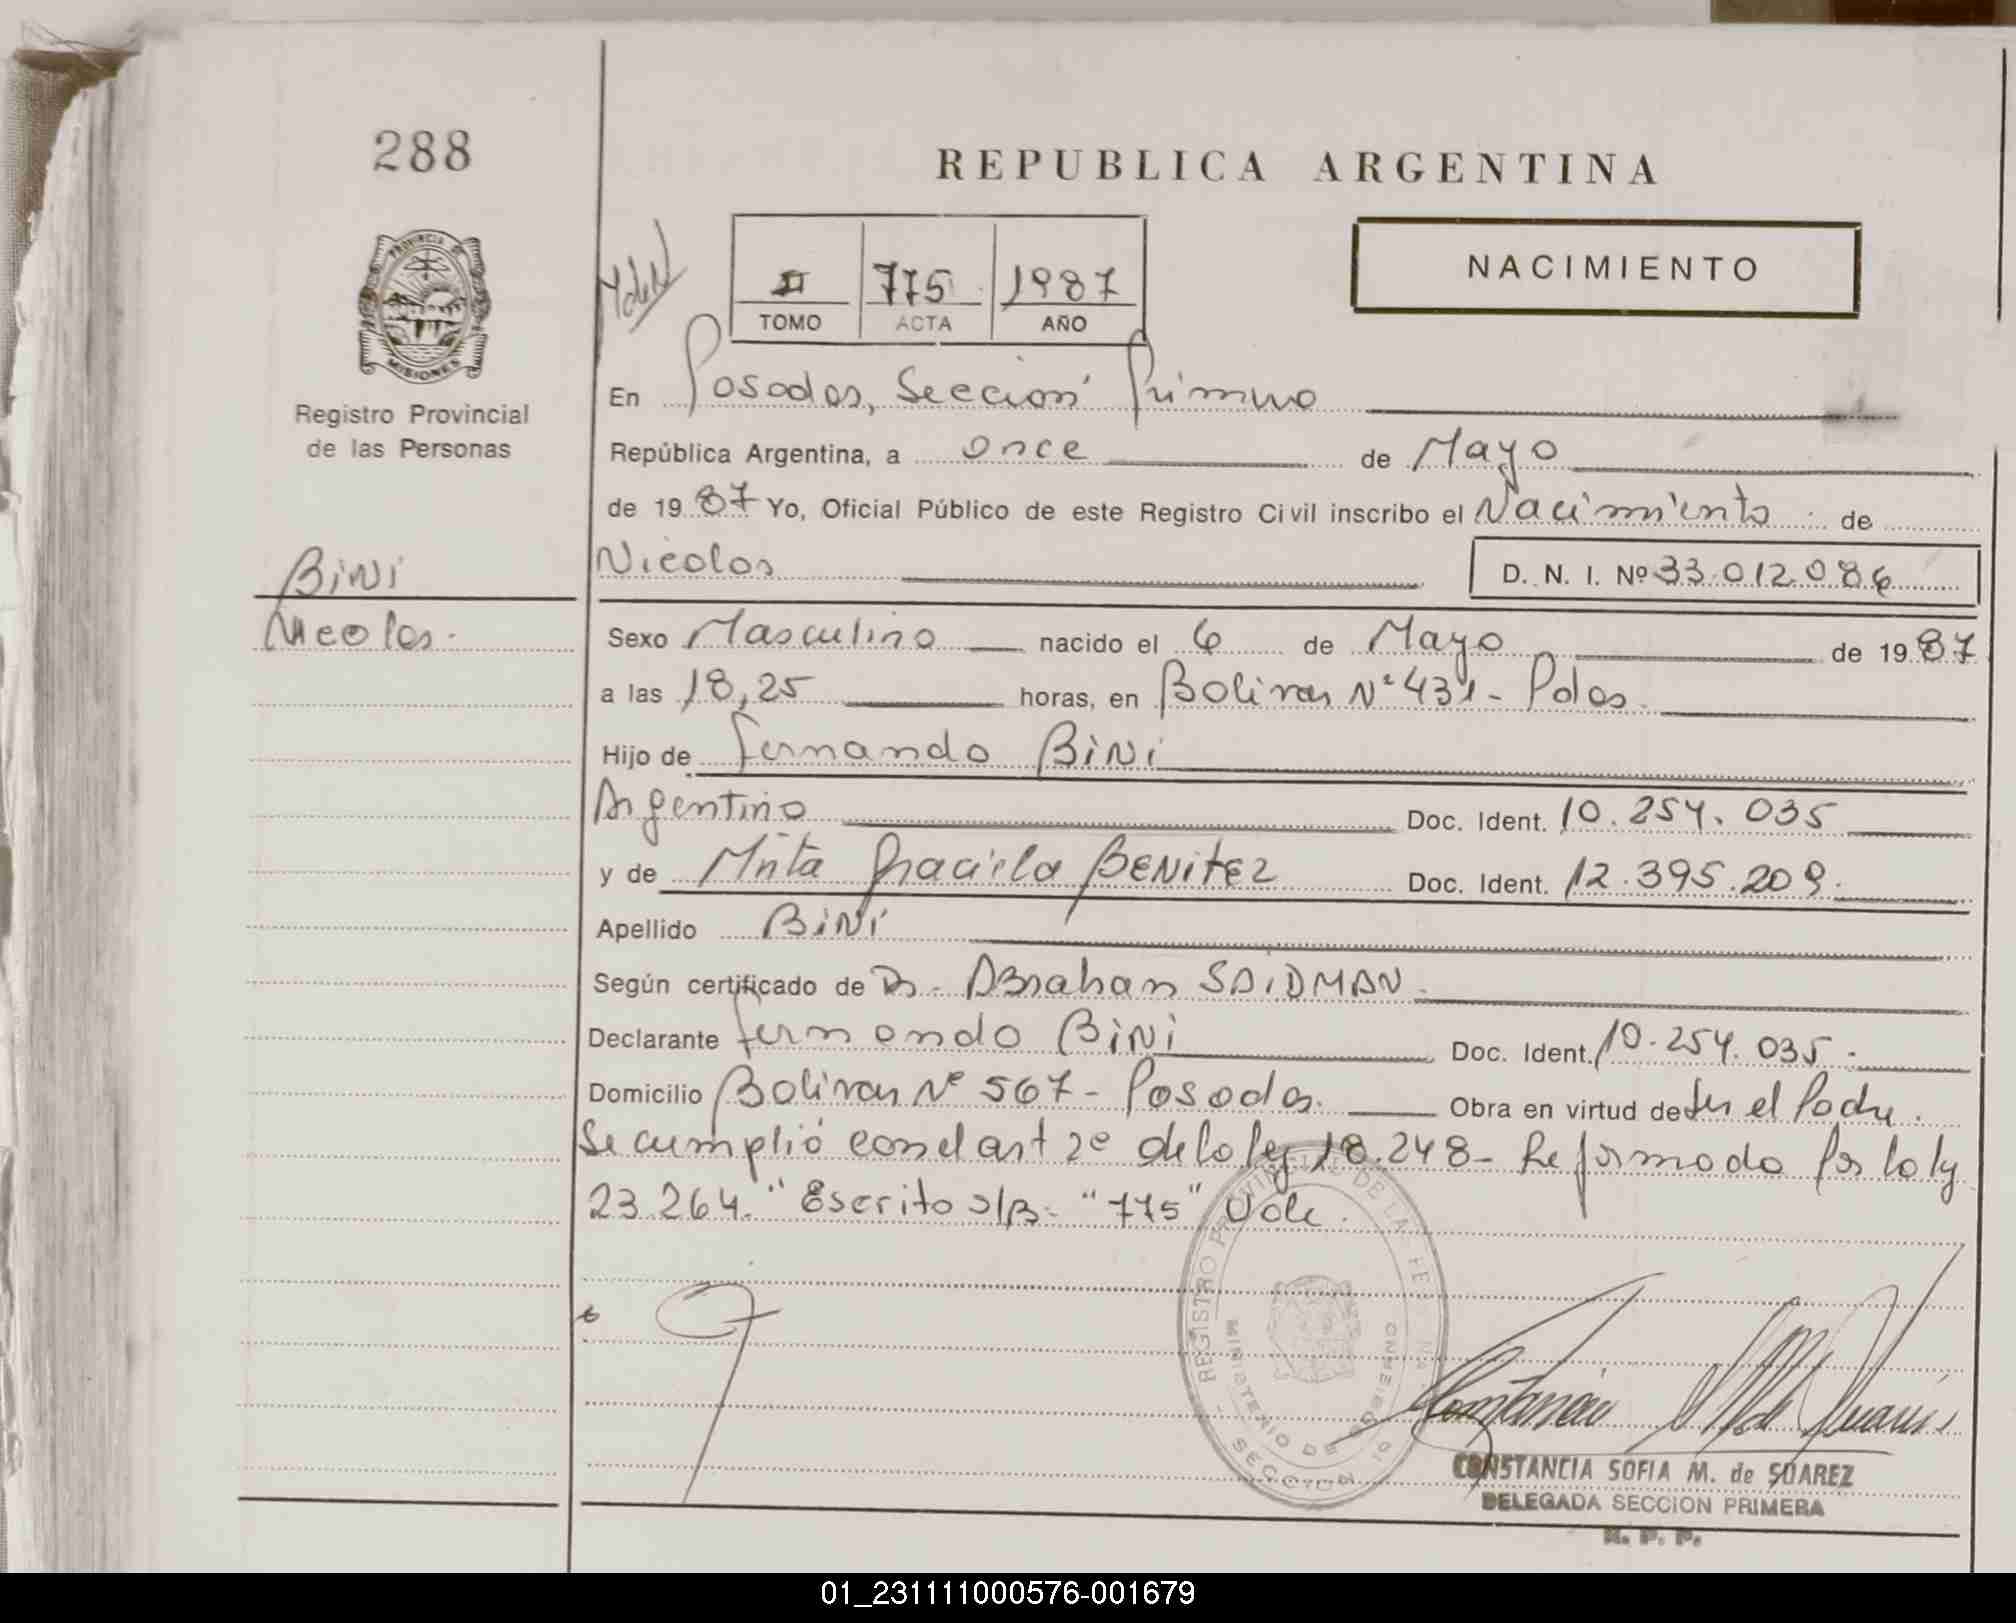 288
REPUBLICA ARGENTINA
II 775 1987
TOMO ACTA AÑO
NACIMIENTO
PROVINCIA DE
MISIONES
Registro Provincial
de las Personas
En Posadas, Sección Primera
República Argentina, a once de Mayo
de 1987 Yo, Oficial Público de este Registro Civil inscribo el Nacimiento de
Nicolas D. N. I. Nº 33.012.086
BiNi
Nicolas.
Sexo Masculino nacido el 6 de Mayo de 1987
a las 18,25 horas, en Bolivar Nº 431 - Pdas.
Hijo de Fernando BiNi
Argentino Doc. Ident. 10.254.035
y de Mirta Graciela BENitEZ Doc. Ident. 12.395.209.
Apellido BiNi
Según certificado de Dr. Abraham SAiDMAN.
Declarante Fernando BiNi Doc. Ident. 10.254.035.
Domicilio Bolivar Nº 567 - Posadas. Obra en virtud de ser el Padre.
Se cumplió con el art 2º de la ley 18.248 - Reformado por la ley
23.264. "Escrito s/B. "775" Vale.
REGISTRO PROVINCIAL DE LAS PERSONAS
MINISTERIO DE GOBIERNO
SECCION 1º
CONSTANCIA SOFIA M. de SUAREZ
DELEGADA SECCION PRIMERA
R. P. P.
01_231111000576-001679